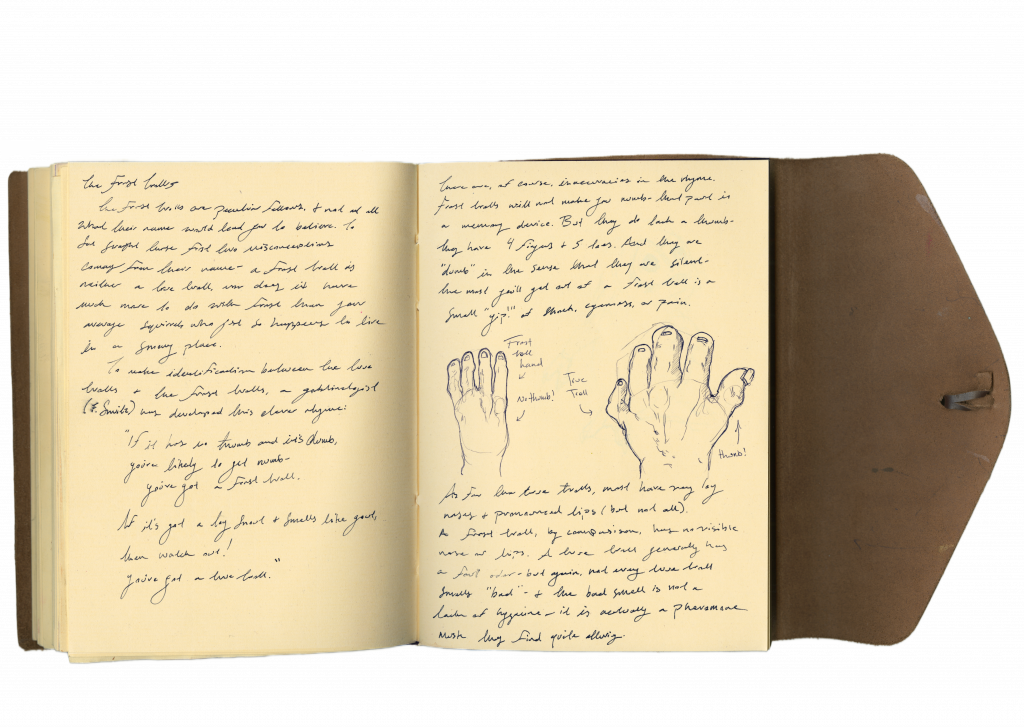 The Frost Trolls
The Frost trolls are peculiar fellows, & not at all
what their name would lead you to believe. To
be the first two misconceptions
coming from their name - a Frost troll is
neither a true troll, nor does it have
much more to do with frost than your
average squirrel who just so happens to live
in a snowy place.
To make identification between the true
trolls & the Frost trolls, a goblinologist
(F. Smith) has developed this clever rhyme:
"If it has no thumb and it's dumb,
you're likely to get numb-
you've got a Frost troll.
If it's got a big snout & smells like goat,
then watch out!
you've got a true troll."
There are, of course, inaccuracies in the rhyme.
Frost trolls will not make you numb - that part is
a memory device. But they do lack a thumb-
they have 4 fingers & 5 toes. And they are
"dumb" in the sense that they are silent-
the most you'll get out of a Frost troll is a
small "yip!" of shock, eagerness, or pain.
Frost
troll
hand
No thumb!
True
Troll
thumb!
As for the true trolls, most have very big
noses & pronounced lips (but not all).
A Frost troll, by comparison, has no visible
nose or lips. A true troll generally has
a foul odor - but again, not every true troll
smells "bad" - & the bad smell is not a
lack of hygiene - it is actually a pheromone
musk they find quite alluring.